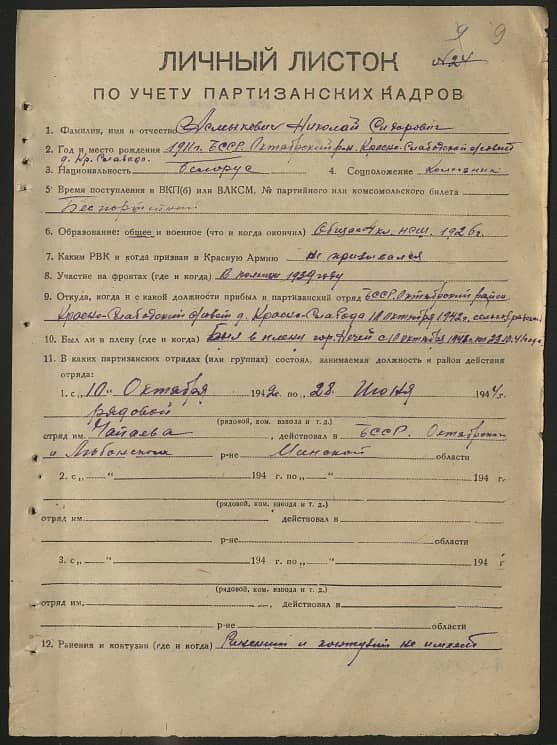 9 9
№24
ЛИЧНЫЙ ЛИСТОК
ПО УЧЕТУ ПАРТИЗАНСКИХ КАДРОВ
1. Фамилия, имя и отчество Николай Сидорович
2. Год и место рождения 1911г. БССР. Октябрьский р-н, Красно-Слабодский
д. Кр. Слабода.
3. Национальность Белорус 4. Соцположение
5. Время поступления в ВКП(б) или ВЛКСМ, № партийного или комсомольского билета
Беспартийный
6. Образование: общее и военное (что и когда окончил) Общее 4 кл. 1926г.
7. Каким РВК и когда призван в Красную Армию не призывался
8. Участие на фронтах (где и когда) В 1939 году
9. Откуда, когда и с какой должности прибыл и партизанский отряд БССР. Октябрьский
Красно-Слабодский д. Красно-Слабода 10 октября 1942г.
10. Был ли в плену (где и когда) Был в плену гор. с 10 октября по
11. В каких партизанских отрядах (или группах) состоял, занимаемая должность и район действия
отряда:
1. с „10“ Октября 1942г. по „28“ Июня 1944г.
рядовой
(рядовой, ком. взвода и т. д.)
отряд им. Чапаева, действовал в БССР. Октябрьском
и Любанском р-не Минской области
2. с „ “ 194 г. по „ “ 194 г.
(рядовой, ком. взвода и т. д.)
отряд им. действовал в
р-не области
3. с „ “ 194 г. по „ “ 194 г
(рядовой, ком. взвода и т. д.)
отряд им. , действовал в
р-не области
12. Ранения и контузии (где и когда) Ранений и контузий не имел